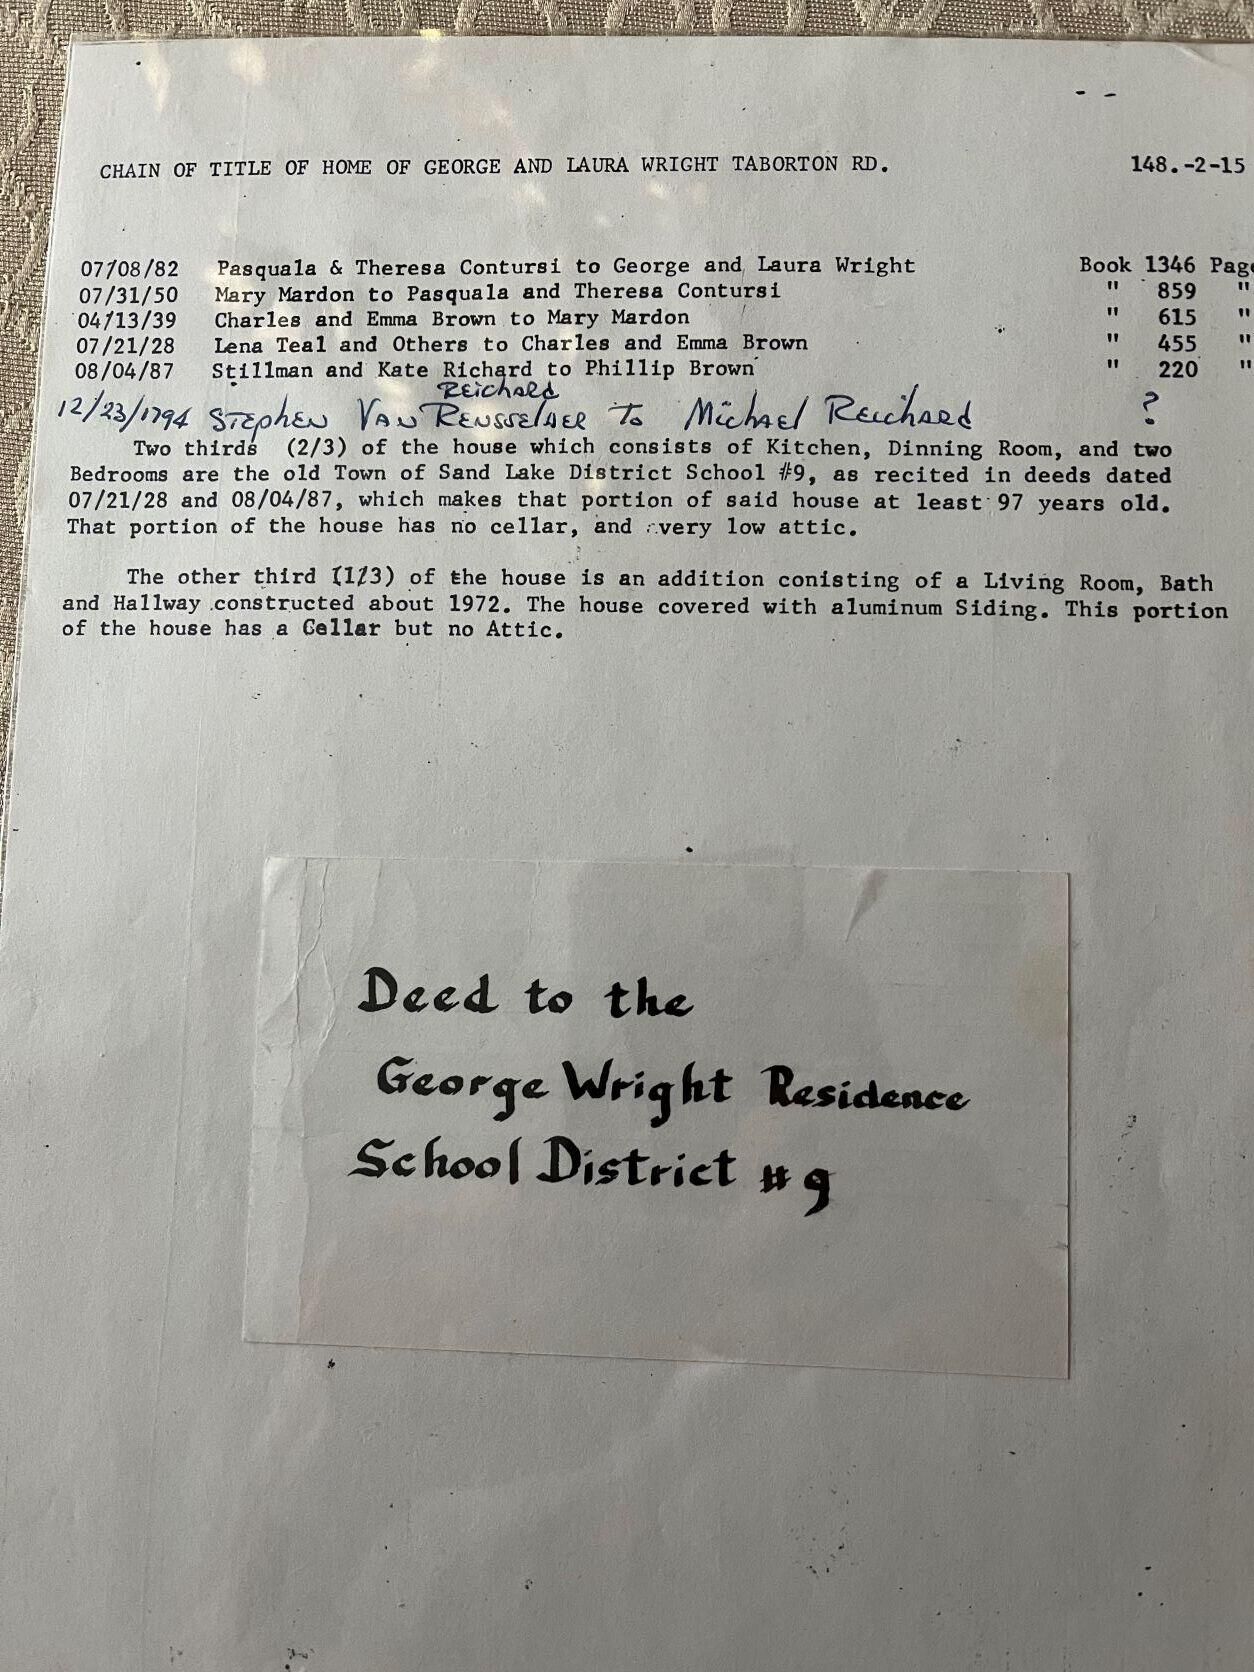 CHAIN OF TITLE OF HOME OF GEORGE AND LAURA WRIGHT TABORTON RD. 148.-2-15
07/08/82 Pasquala & Theresa Contursi to George and Laura Wright Book 1346 Page
07/31/50 Mary Mardon to Pasquala and Theresa Contursi " 859 "
04/13/39 Charles and Emma Brown to Mary Mardon " 615 "
07/21/28 Lena Teal and Others to Charles and Emma Brown " 455 "
08/04/87 Stillman and Kate Richard to Phillip Brown " 220 "
Reichard
12/23/1794 Stephen Van Rensselaer To Michael Reichard ?
Two thirds (2/3) of the house which consists of Kitchen, Dinning Room, and two
Bedrooms are the old Town of Sand Lake District School #9, as recited in deeds dated
07/21/28 and 08/04/87, which makes that portion of said house at least 97 years old.
That portion of the house has no cellar, and very low attic.
The other third (1/3) of the house is an addition conisting of a Living Room, Bath
and Hallway constructed about 1972. The house covered with aluminum Siding. This portion
of the house has a Cellar but no Attic.
Deed to the
George Wright Residence
School District #9